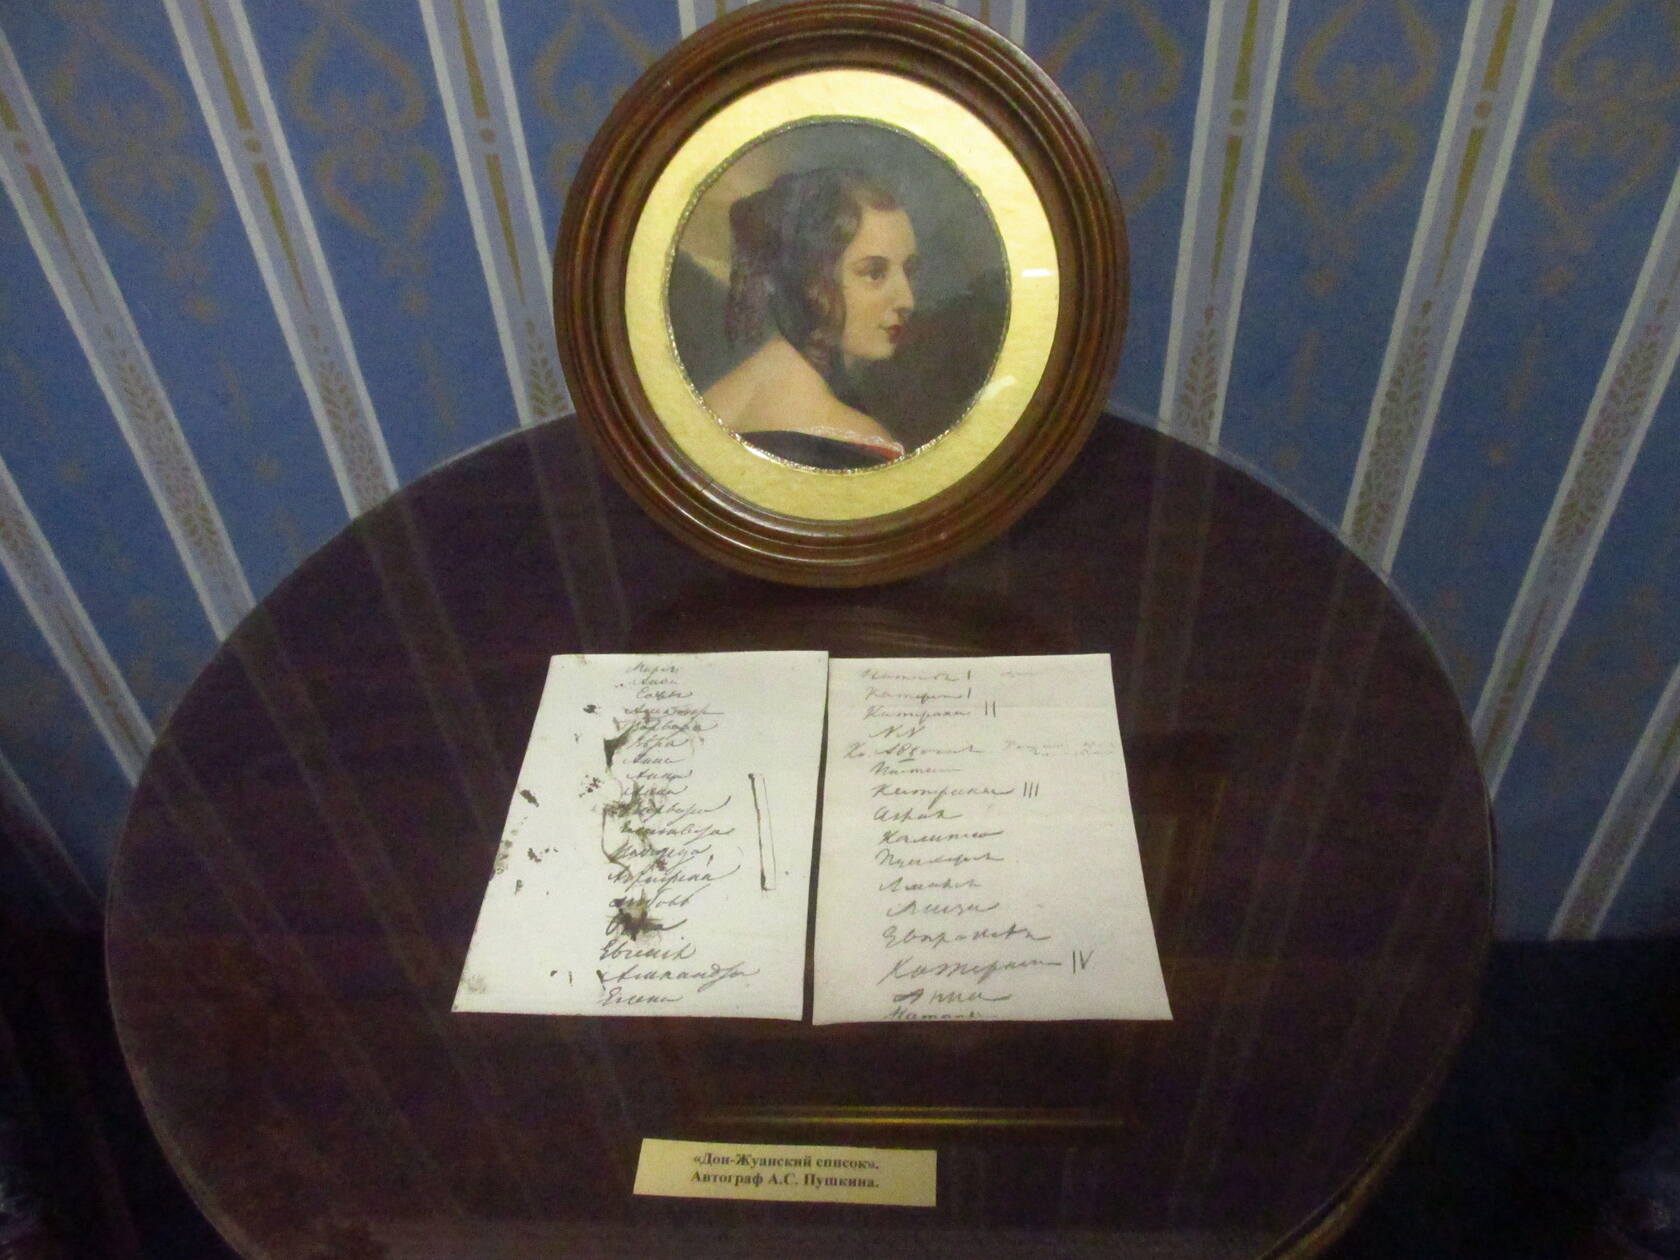 Мария
Анна
Софья
Александра
Варвара
Вера
Анна
Анна
Анна
Варвара
Елизавета
Надежда
Аграфена
Любовь
Ольга
Евгенія
Александра
Елена
Наталья I
Катерина I
Катерина II
NN
Кн. Авдотья
Настасья
Катерина III
Аглая
Калипсо
Пулхерія
Амалія
Элиза
Евпраксея
Катерина IV
Анна
Наталья
«Дон-Жуанский список».
Автограф А.С. Пушкина.